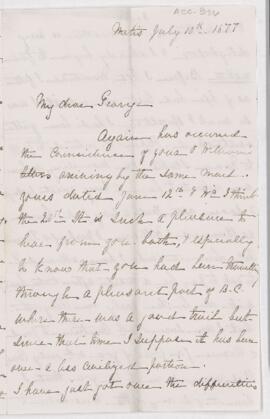 Metis July 10th 1877
My dear George
Again has occurred
the Coincidence of yours & William's
arriving by the same mail.
Yours dated June 12th & W's I think
the 20th It is such a pleasure to
hear from you both, & especially
to know that you had been
through a pleasant part of B.C.
where there was a good trail but
since that time I suppose it has been
over a less civilized portion.
I have just got over the difficulties